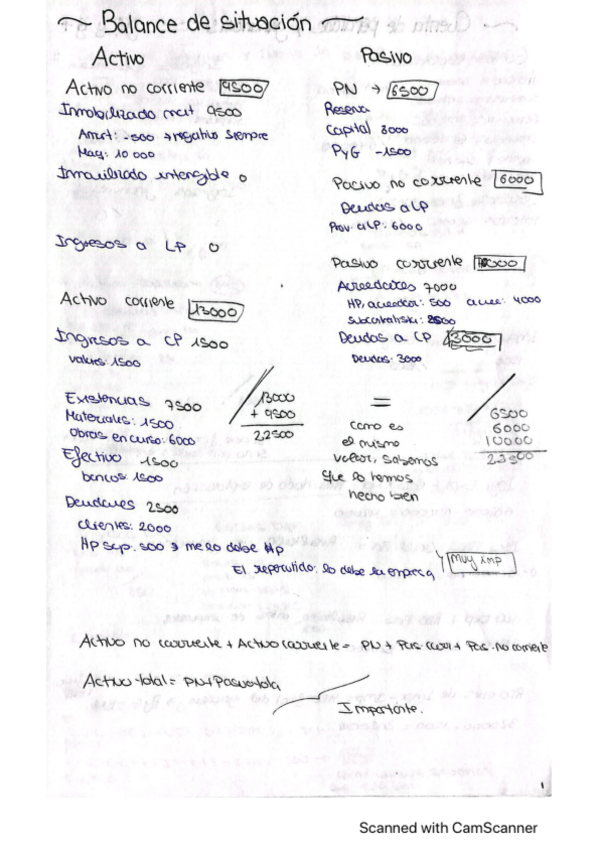 ~ Balance de situación ~
Activo
Activo no corriente 9500
Inmobilizado mat 9500
Amort: -500 → negativo siempre
Maq: 10 000
Inmobilizado intengible 0
Ingresos a LP 0
Activo corriente 13000
Ingresos a CP 1500
valores: 1500
Existencias 7500
Materiales: 1500
Obras en curso: 6000
Efectivo 1500
bancos: 1500
Deudores 2500
clientes: 2000
HP sop. 500 → me lo debe HP
13000
+ 9500
22500
Pasivo
PN → 6500
Reserva
Capital 8000
PyG -1500
Pasivo no corriente 6000
Deudas a LP
Prov a LP: 6000
Pasivo corriente
Acreedores 7000
HP, acreedor: 500 acree: 4000
Subcontratista: 2500
Deudas a CP 3000
Deudas: 3000
=
como es
el mismo
valor, sabemos
que lo hemos
hecho bien
6500
6000
10000
22500
El repercutido: lo debe la empresa
Muy imp
Activo no corriente + Activo corriente = PN + Pas. corri + Pas. no corriente
Activo total = PN + Pasivo total
Importante.
1
Scanned with CamScanner